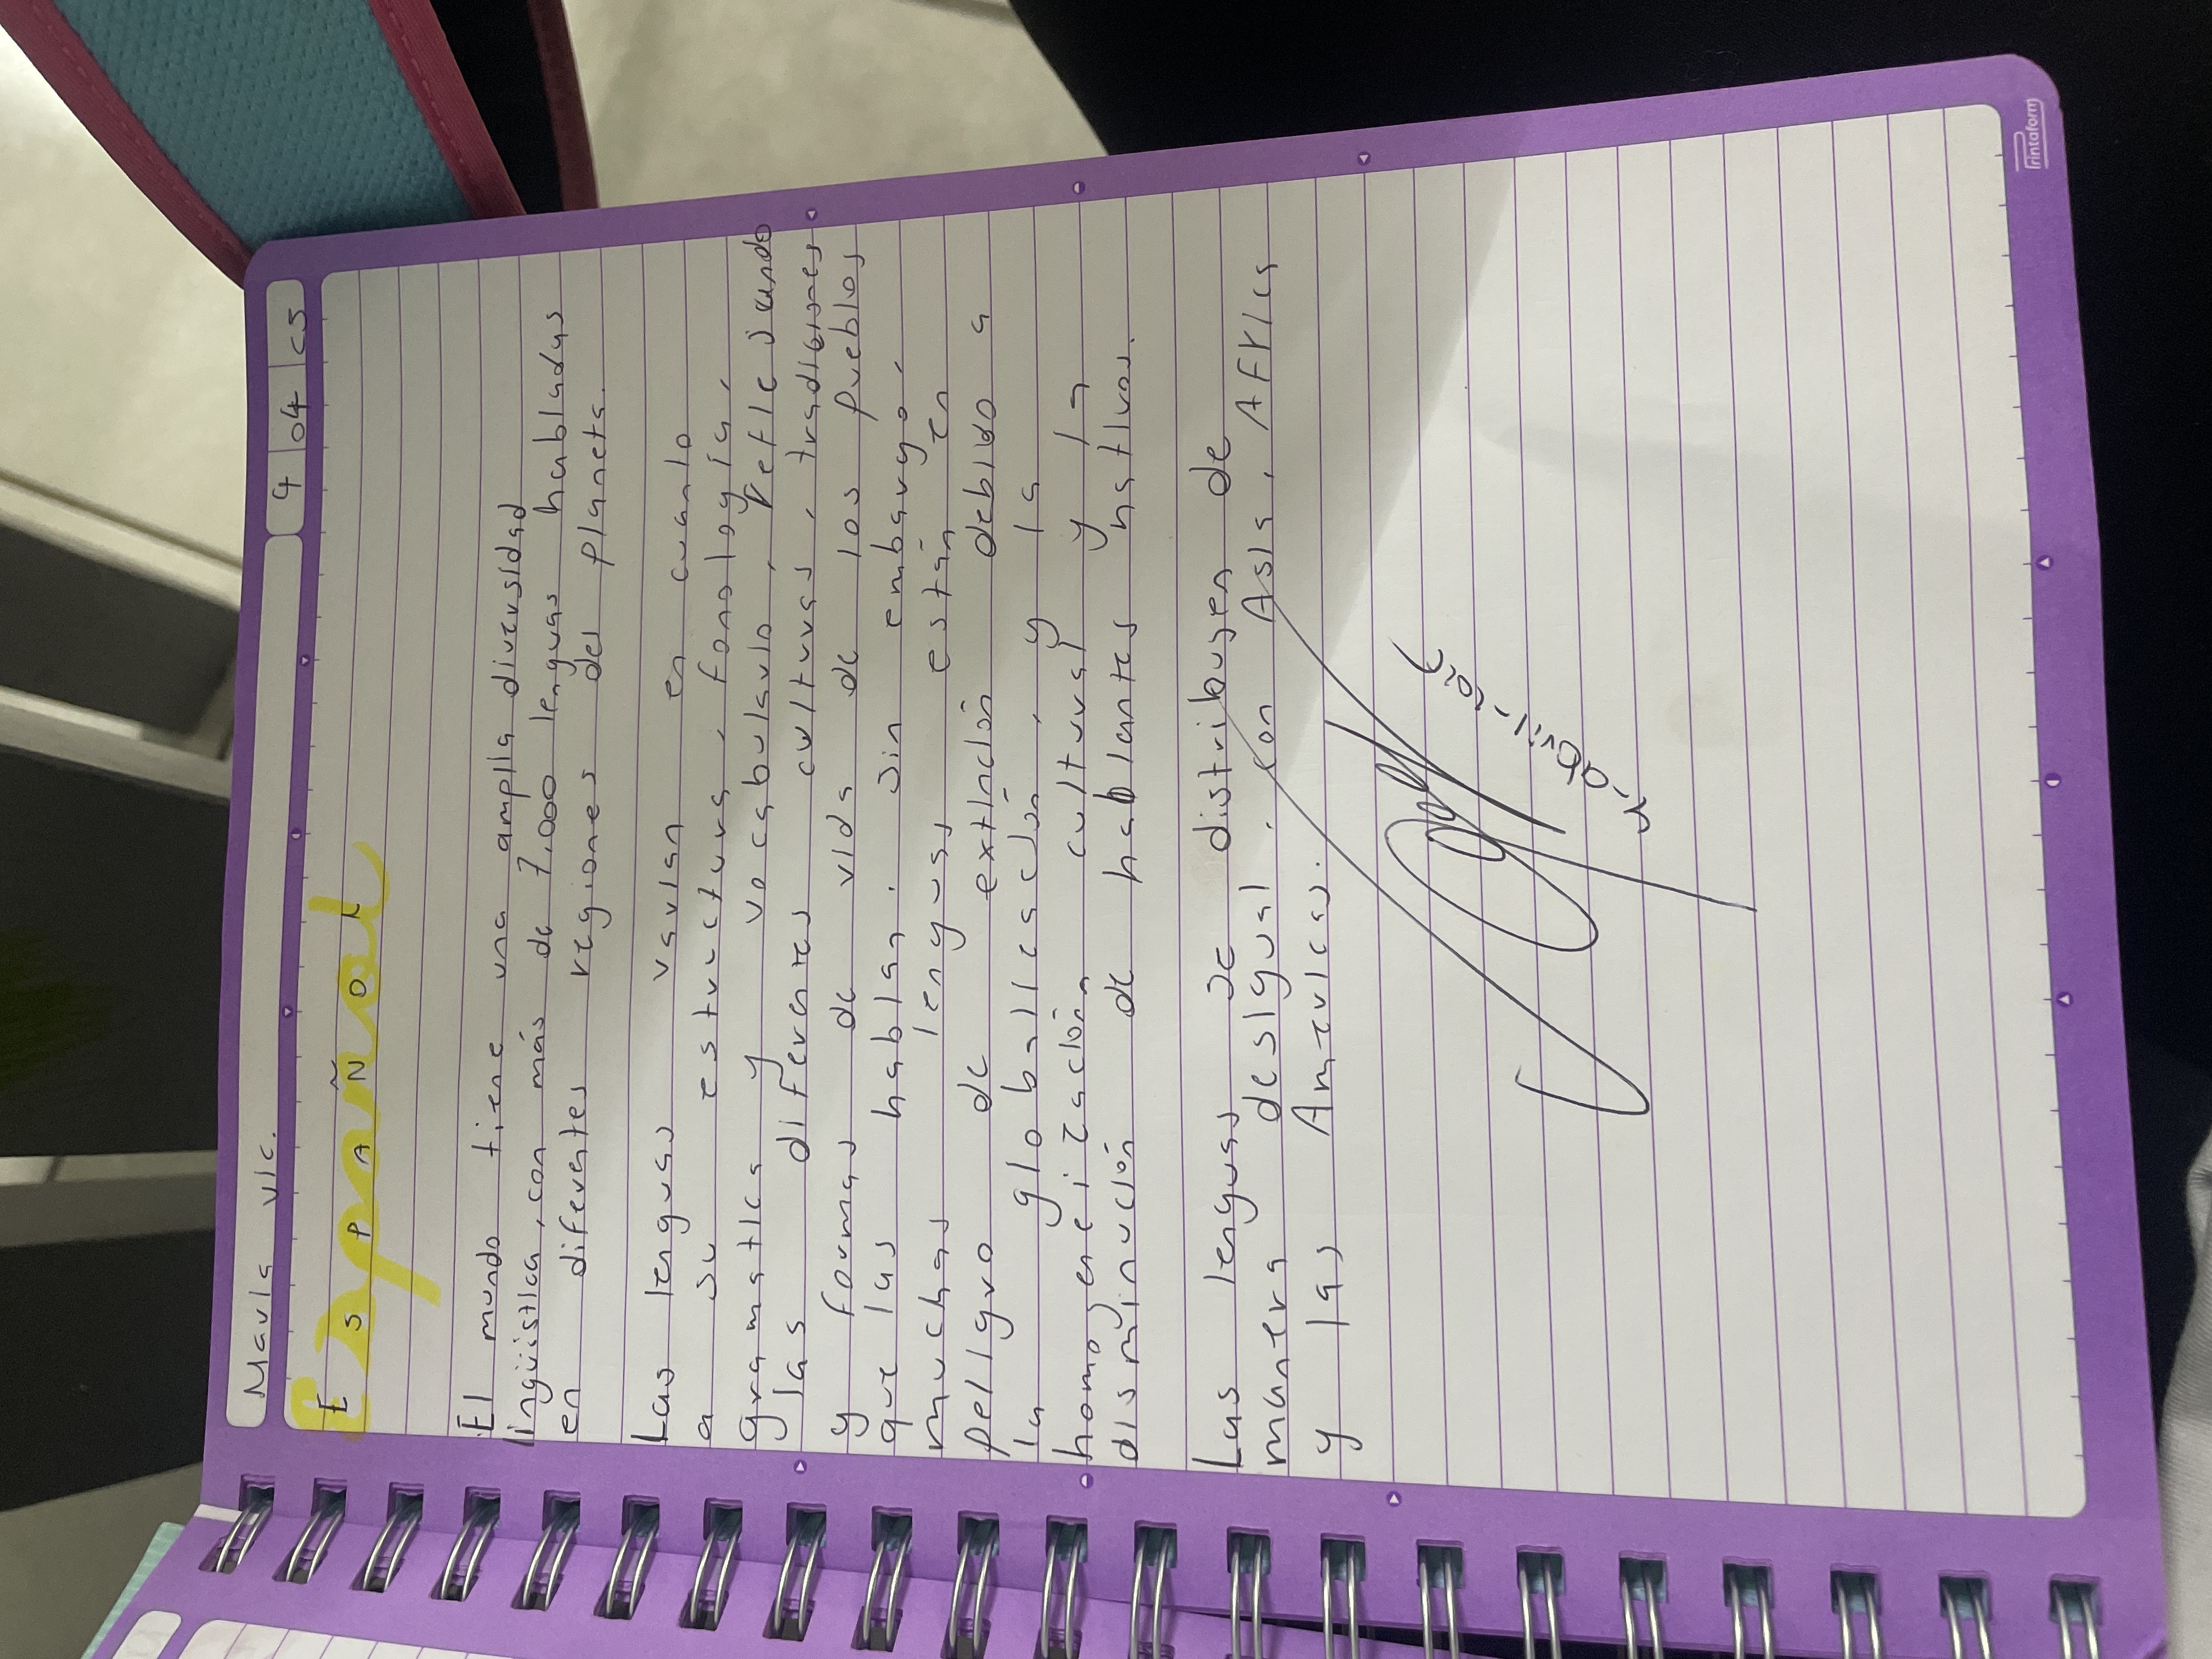 Maria vic.
9 04 25
ESPAÑOL
El mundo tiene una amplia diversidad
lingüística, con más de 7,000 lenguas habladas
en diferentes regiones del planeta.
Las lenguas varian en cuanto
a su estructura, fonología,
gramatica y vocabulario, reflejando
las diferentes culturas, tradiciones
y formas de vida de los pueblos
que las hablan. Sin embargo,
muchas lenguas están en
peligro de extinción debido a
la globalización, y la
homogeneización cultural y la
disminución de hablantes nativos.
Las lenguas se distribuyen de
manera desigual, con Asia, Africa
y las Americas.
abril-
Printaform